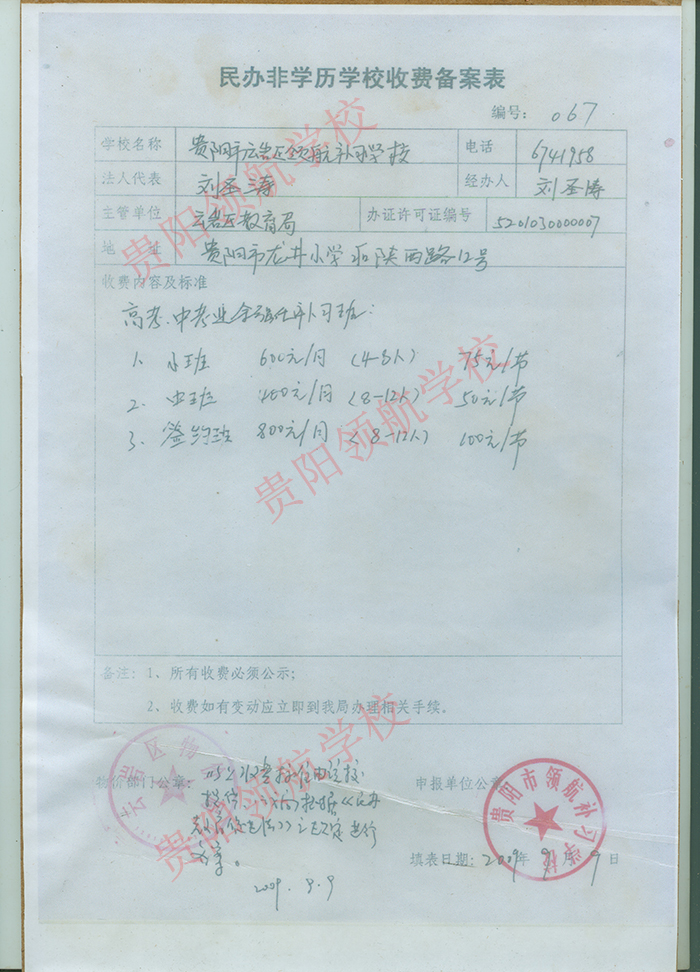 民办非学历学校收费备案表
编号: 067
学校名称 贵阳市云岩区领航补习学校 电话 6741958
法人代表 刘丕涛 经办人 刘丕涛
主管单位 云岩区教育局 办证许可证编号 5201030000007
地 址 贵阳市龙井小学 陕西路12号
收费内容及标准
高考、中考 补习班:
1、小班 600元/月 (4-8人) 75元/节
2、中班 400元/月 (8-12人) 50元/节
3、签约班 800元/月 (8-12人) 100元/节
备注: 1、所有收费必须公示;
2、收费如有变动应立即到我局办理相关手续。
物价部门公章: 以上收费标准由学校
申报单位公章:
备案。
填表日期: 2009年9月9日
2009.9.9
云岩区物
贵阳市领航补习学校
贵阳领航学校
贵阳领航学校
贵阳领航学校